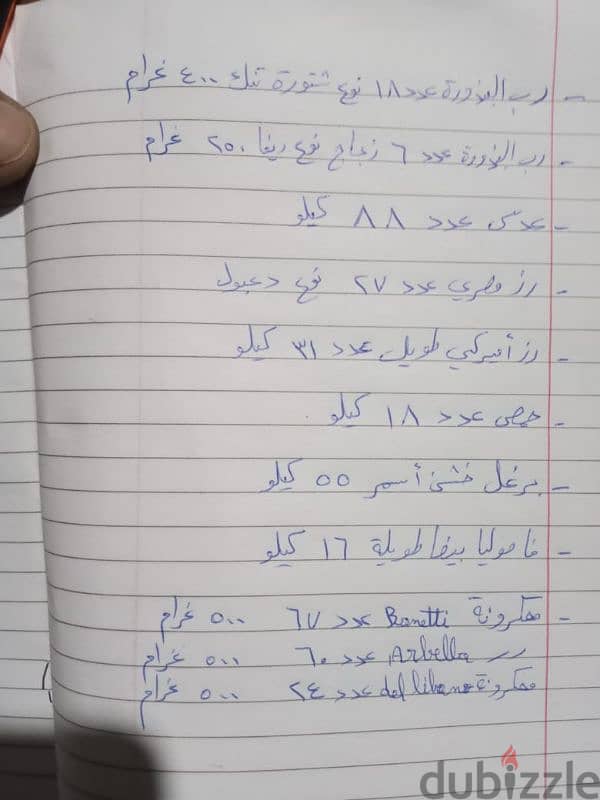 - رب البندورة عدد ١٨ نوع شتورة تنك ٤٠٠ غرام
- رب البندورة عدد ٦ زجاج نوع ريفا ٢٥٠ غرام
- عدس عدد ٨٨ كيلو
- رز مصري عدد ٢٧ نوع دعبول
- رز أميركي طويل عدد ٣١ كيلو
- حمص عدد ١٨ كيلو
- برغل خشن أسمر ٥٥ كيلو
- فاصوليا بيضا طويلة ١٦ كيلو
- معكرونة Banetti عدد ٦٧ ٥٠٠ غرام
رر Arbella عدد ٦٠ ٥٠٠ غرام
معكرونة del libano عدد ٢٤ ٥٠٠ غرام
dubizzle